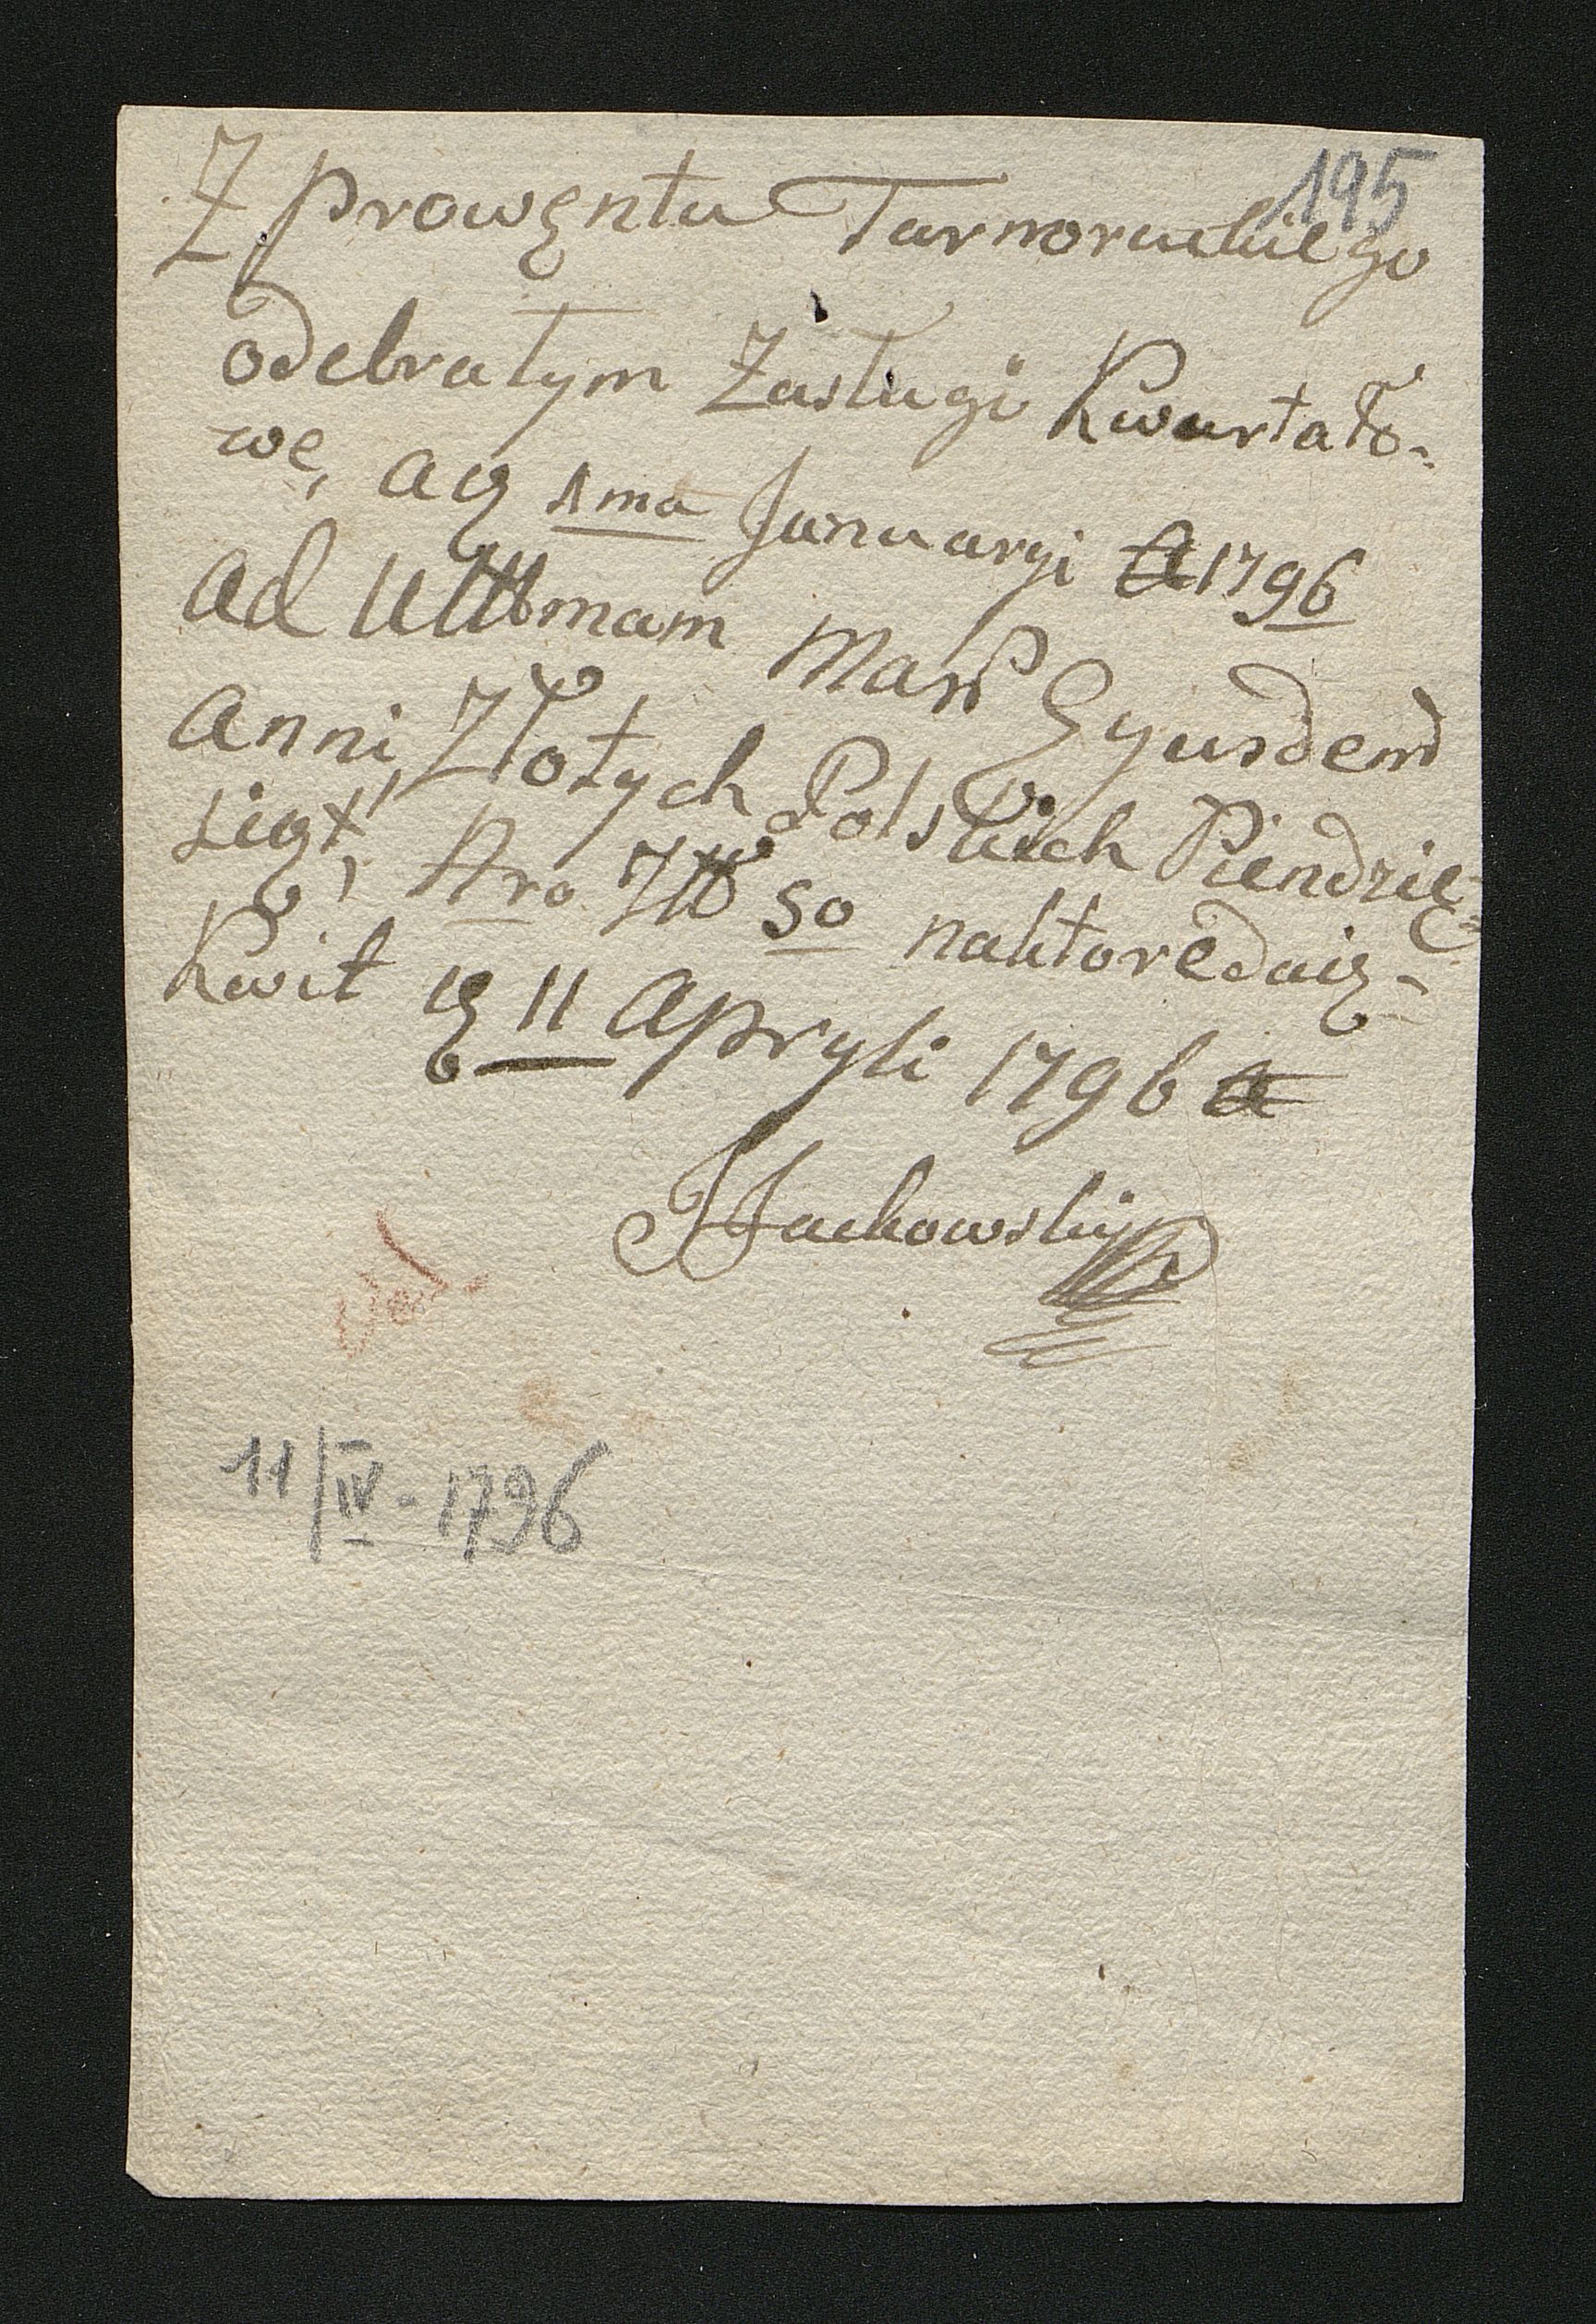 195
Z prowęntu Tarnoruckiego
odebrałym Zasługi Kwartało-
we, a 1ma Januaryi A 1796
ad Ulttmam Mar Eyusdem
anni, Złotych Polskich Piendzie-
siąt, Nro Złł 50 na ktore daię
Kwit 11 Apryli 1796 a
JJackowski
11/IV - 1796